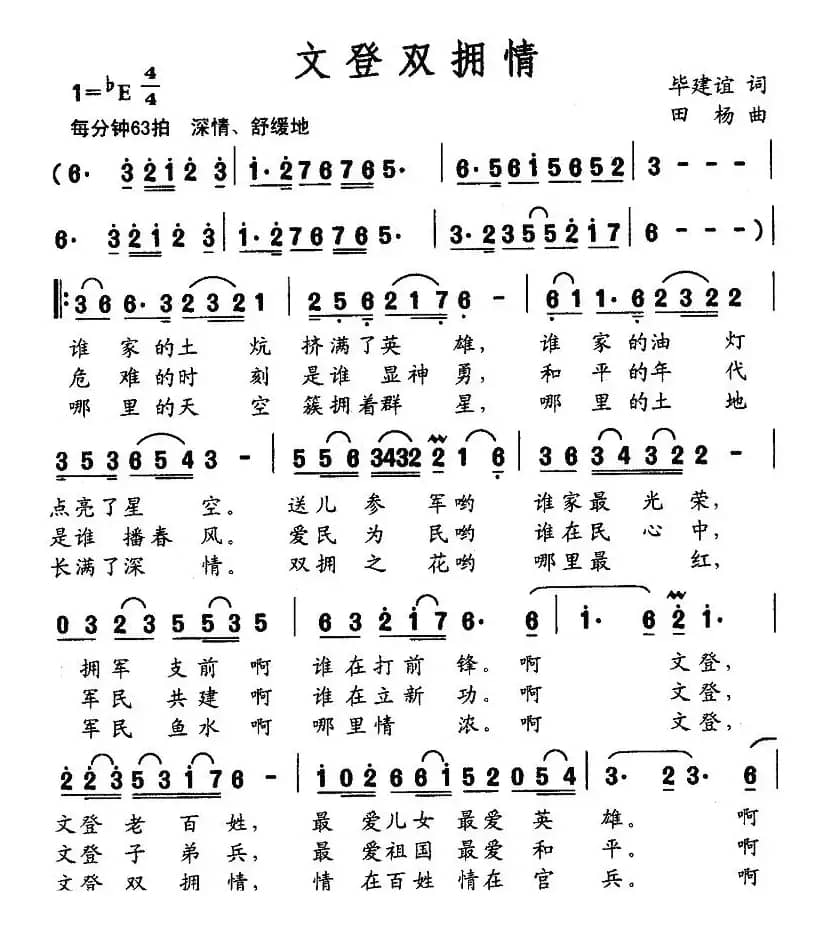 文登双拥情
1=♭E 4/4
毕建谊 词
田 杨 曲
每分钟63拍 深情、舒缓地
(6· 3 2 1 2 3 | 1· 2 7 6 7 6 5· | 6· 5 6 1 5 6 5 2 | 3 - - - |
6· 3 2 1 2 3 | 1· 2 7 6 7 6 5· | 3· 2 3 5 5 2 1 7 | 6 - - - ) |
‖: 3 6 6· 3 2 3 2 1 | 2 5 6 2 1 7 6 - | 6 1 1· 6 2 3 2 2 |
谁 家 的土 炕 挤满了英 雄, 谁 家 的油 灯
危 难 的时 刻 是谁 显神 勇, 和 平 的年 代
哪 里 的天 空 簇拥着群 星, 哪 里 的土 地
3 5 3 6 5 4 3 - | 5 5 6 3432 2 1 6 | 3 6 3 4 3 2 2 - |
点亮了星 空。 送儿 参 军哟 谁家最 光荣,
是谁 播春 风。 爱民 为 民哟 谁在民 心中,
长满了深 情。 双拥 之 花哟 哪里最 红,
0 3 2 3 5 5 3 5 | 6 3 2 1 7 6· 6 | 1· 6 2 1· |
拥军 支前 啊 谁在打前 锋。啊 文登,
军民 共建 啊 谁在立新 功。啊 文登,
军民 鱼水 啊 哪里情 浓。啊 文登,
2 2 3 5 3 1 7 6 - | 1 0 2 6 6 1 5 2 0 5 4 | 3· 2 3· 6 |
文登 老 百姓, 最 爱儿女 最爱 英 雄。 啊
文登 子 弟兵, 最 爱祖国 最爱 和 平。 啊
文登 双 拥情, 情 在百姓 情在 官 兵。 啊